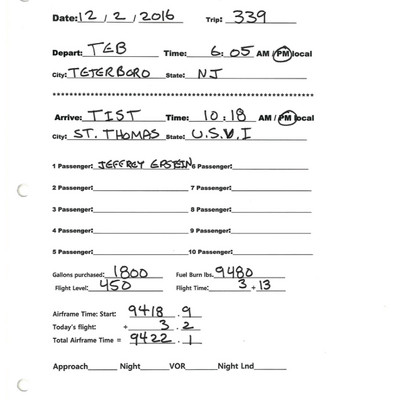 Date: 12 / 2 / 2016 Trip: 339
Depart: TEB Time: 6:05 AM / PM local
City: TETERBORO State: NJ
Arrive: TIST Time: 10:18 AM / PM local
City: ST. THOMAS State: U.S.V.I
1 Passenger: JEFFREY EPSTEIN 6 Passenger:
2 Passenger: 7 Passenger:
3 Passenger: 8 Passenger:
4 Passenger: 9 Passenger:
5 Passenger: 10 Passenger:
Gallons purchased: 1800 Fuel Burn lbs. 9480
Flight Level: 450 Flight Time: 3 + 13
Airframe Time: Start: 9418 . 9
Today's flight: + 3 . 2
Total Airframe Time = 9422 . 1
Approach Night VOR Night Lnd